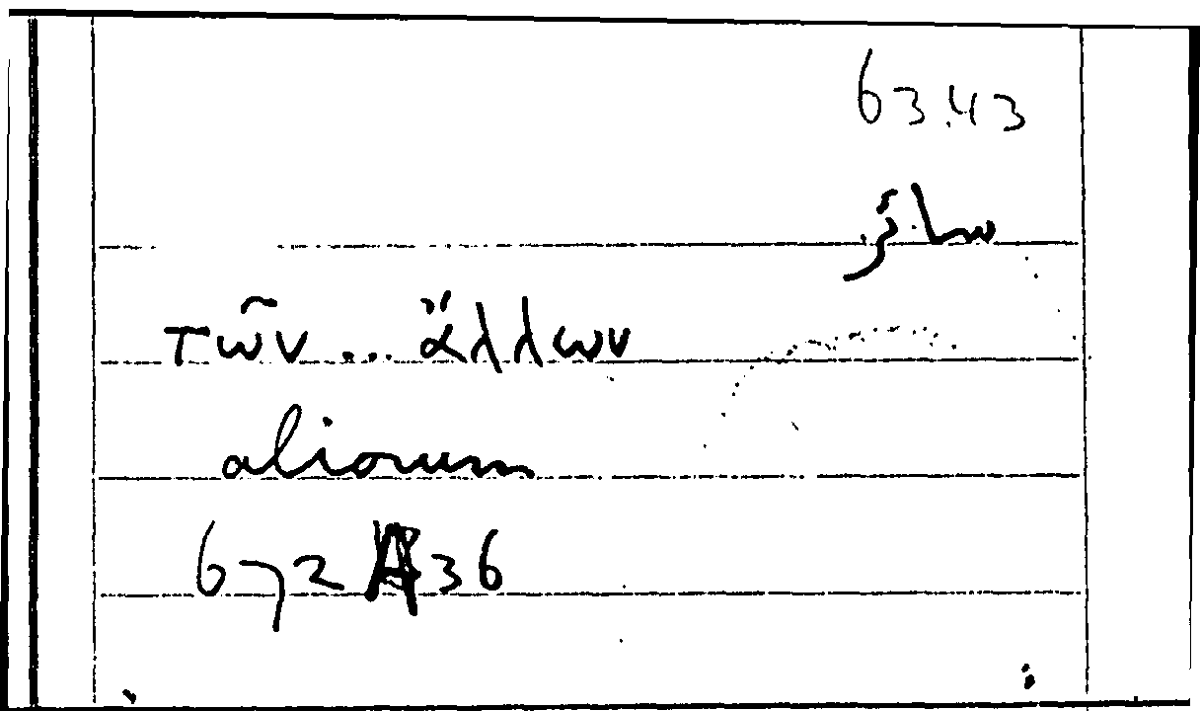 63.43
سائر
τῶν ... ἄλλων
aliorum
672 A 36